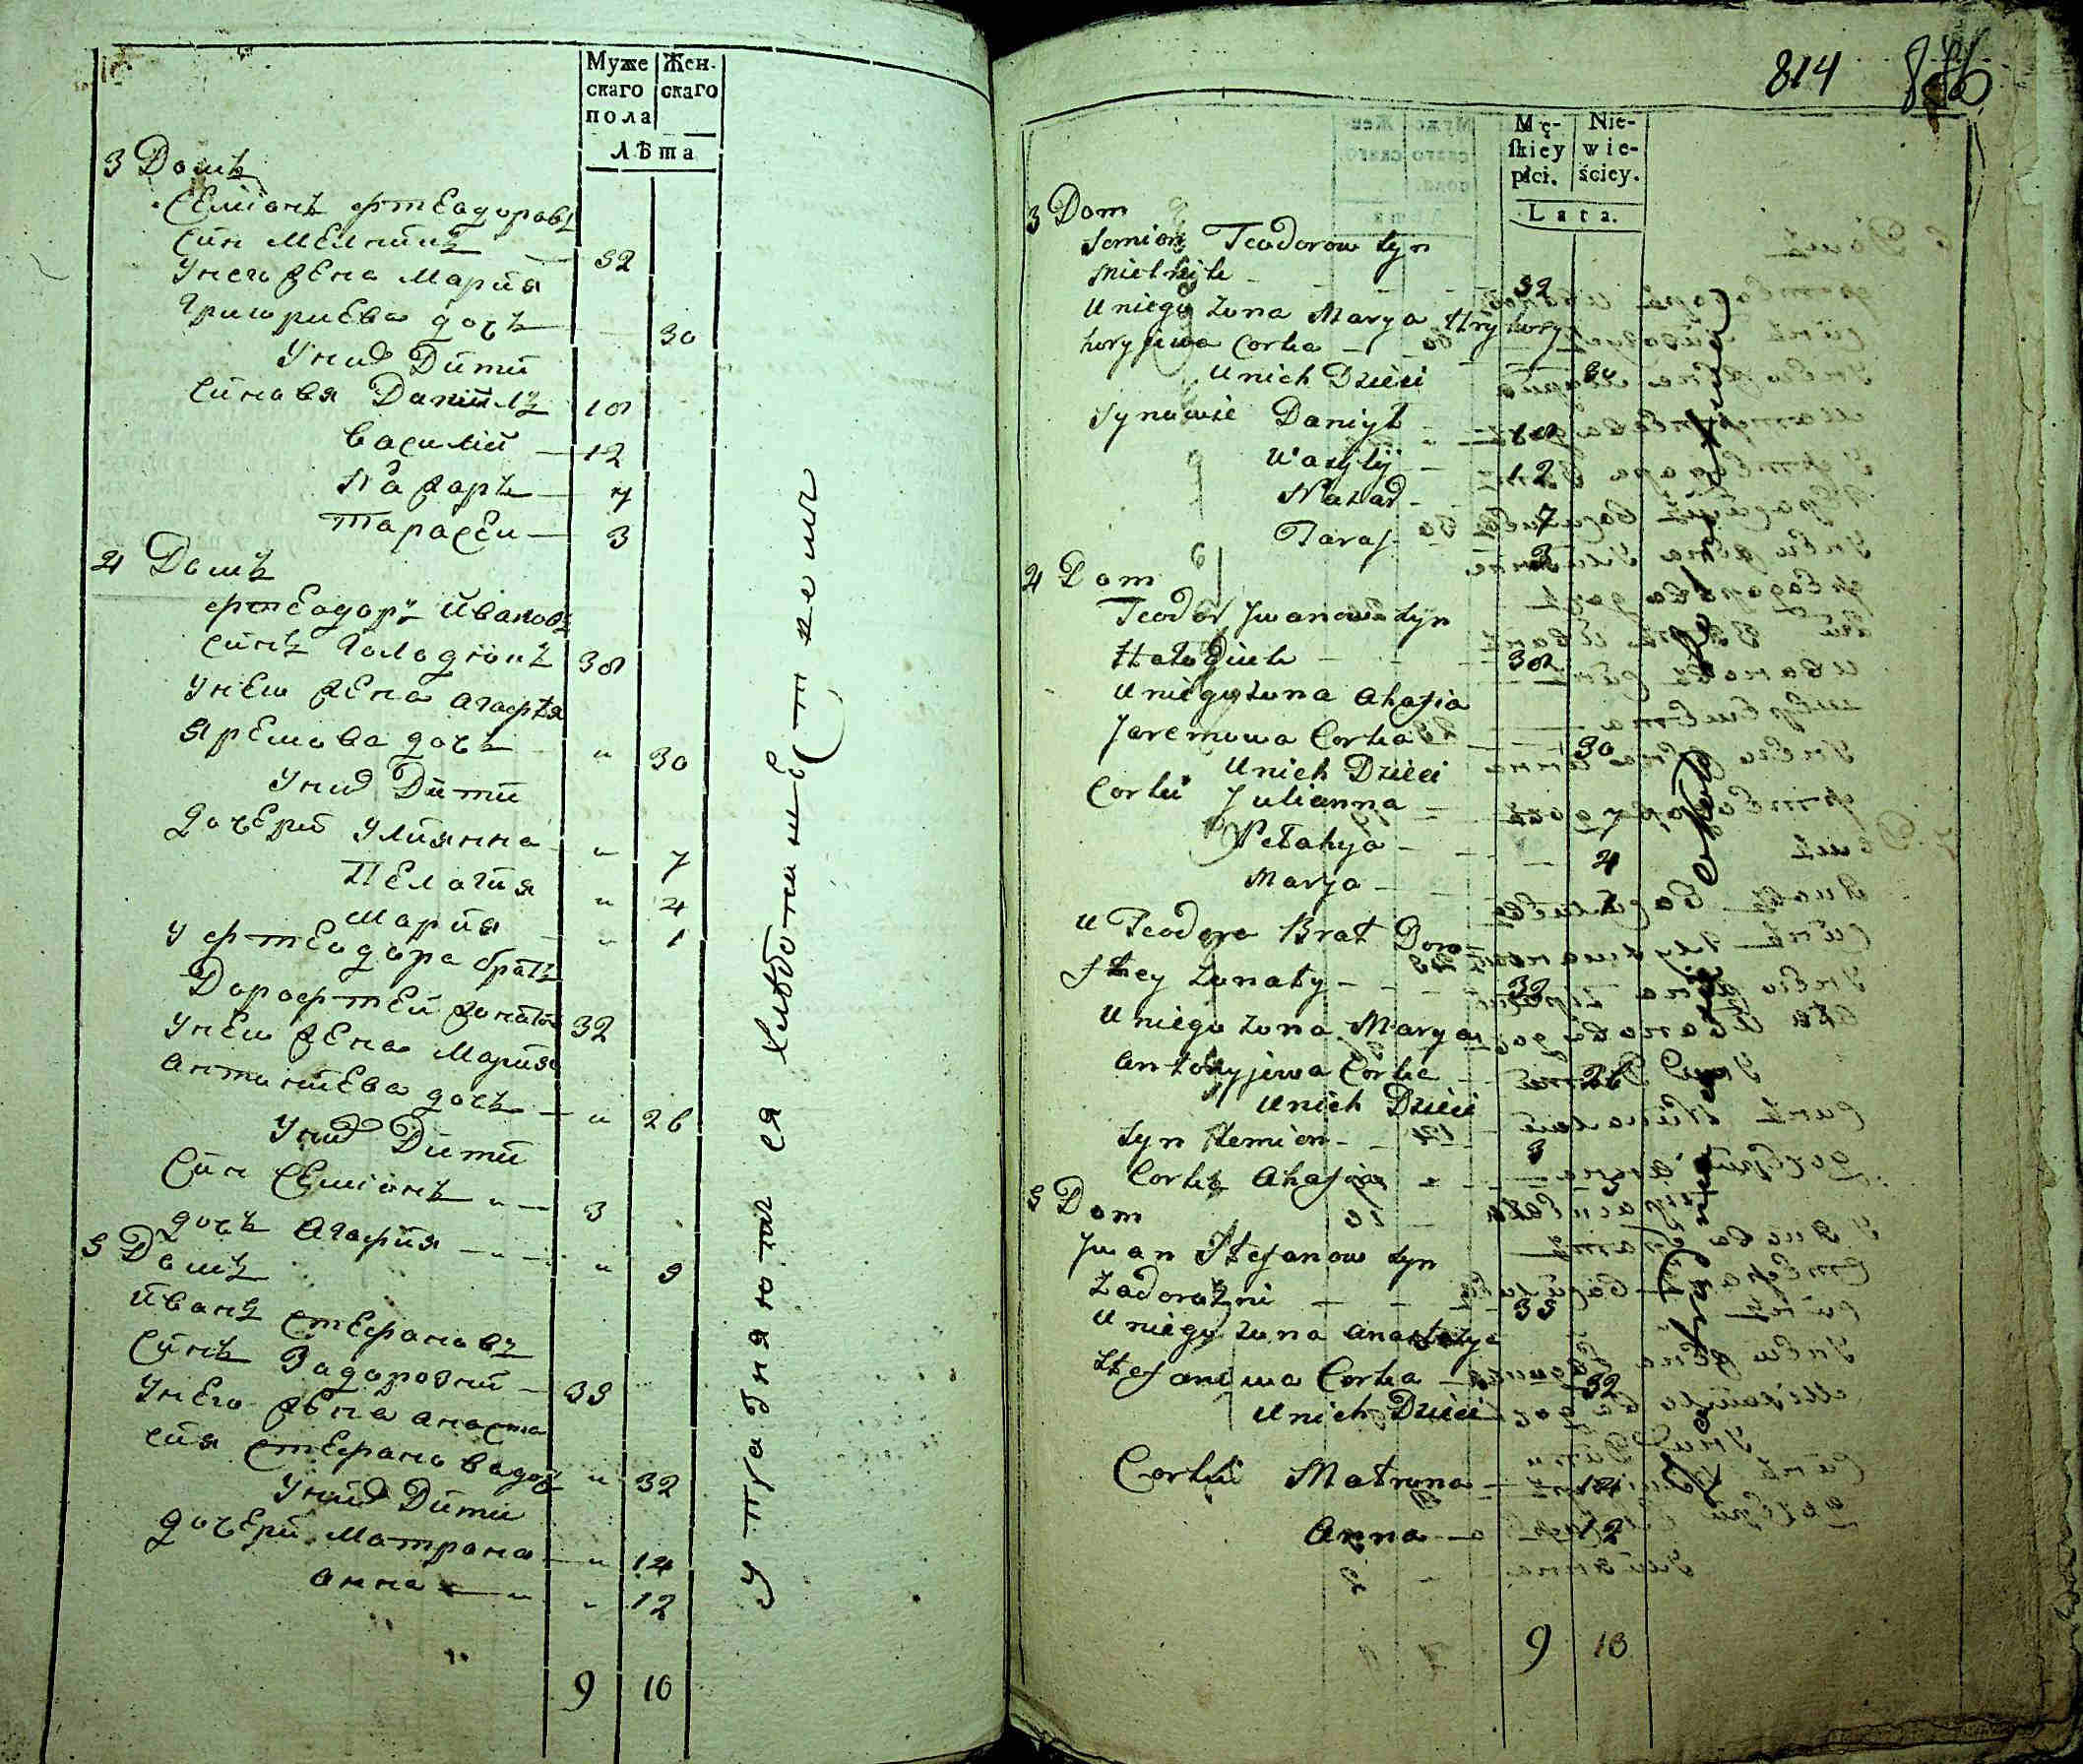 Муже
скаго
пола
Жен-
скаго
Лѣта
3 Домъ
Семіонъ Фтеодоровъ
Синъ Мелникъ 32
Унего жена Мария
Григориева дочъ 30
Уних Дити
Синовя Данііилъ 18
Василій 12
Назаръ 7
Тарасеи 3
4 Домъ
Фтеодоръ Ивановъ
Синъ Голодюкъ 38
Унего жена Агафѣя
Яремова дочъ " 30
Уних Дити
Дочери Улиянна " 7
Пелагия " 4
Мария " 1
У Фтеодора братъ
Дорофтей жонатой 32
Унего жена Мария
Антониева дочъ " 26
Уних Дити
Син Семіонъ 3
дочъ Агафия " 9
5 Домъ
Иванъ Стефановъ
Синъ Задорожни 35
Унего жена Анаста
сия Стефанова дочъ " 32
Уних Дити
Дочери Матрона " 14
Анна " 12
9 10
Упражняются Хлѣбопашеством
814
Mę-
skiey
płci.
Nie-
wie-
ściey.
Lata.
3 Dom
Semion Teodorow syn
Mielnik 32
U niego zona Marya Hry
horyjewa Corka 30
U nich Dzieci
Synowie Daniył 18
Wasylij 12
Nazar 7
Taras 3
4 Dom
Teodor Jwanow syn
Hołodiuk 38
U niego zona Ahafia
Jaremowa Corka 30
U nich Dzieci
Corki Julianna 7
Pełahya 4
Marya
U Teodora Brat Doro
ftey zonaty 32
U niego zona Marya
Antonyjewa Corka 26
U nich Dzieci
Syn Semion 3
Corka Ahafia
5 Dom
Jwan Stefanow syn
Zadorożni 35
U niego zona Anastazya
Stefanowa Corka 32
U nich Dzieci
Corki Matrona 14
Anna 12
9 10